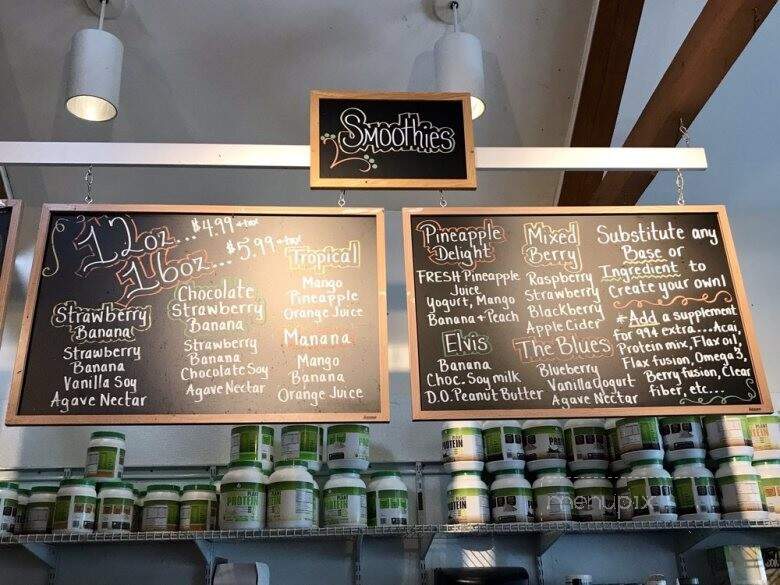 Smoothies
12oz...$4.99+tax
16oz...$5.99+tax
Strawberry
Banana
Strawberry
Banana
Vanilla Soy
Agave Nectar
Chocolate
Strawberry
Banana
Strawberry
Banana
Chocolate Soy
Agave Nectar
Tropical
Mango
Pineapple
Orange Juice
Manana
Mango
Banana
Orange Juice
Pineapple
Delight
FRESH Pineapple
Juice
Yogurt, Mango
Banana + Peach
Elvis
Banana
Choc. Soy milk
D.O. Peanut Butter
Mixed
Berry
Raspberry
Strawberry
Blackberry
Apple Cider
The Blues
Blueberry
Vanilla Yogurt
Agave Nectar
Substitute any
Base or
Ingredient to
create your own!
*Add a supplement
for 99¢ extra....Acai,
Protein mix, Flax oil,
Flax fusion, Omega 3,
Berry fusion, Clear
fiber, etc...
PROTEIN
menupix